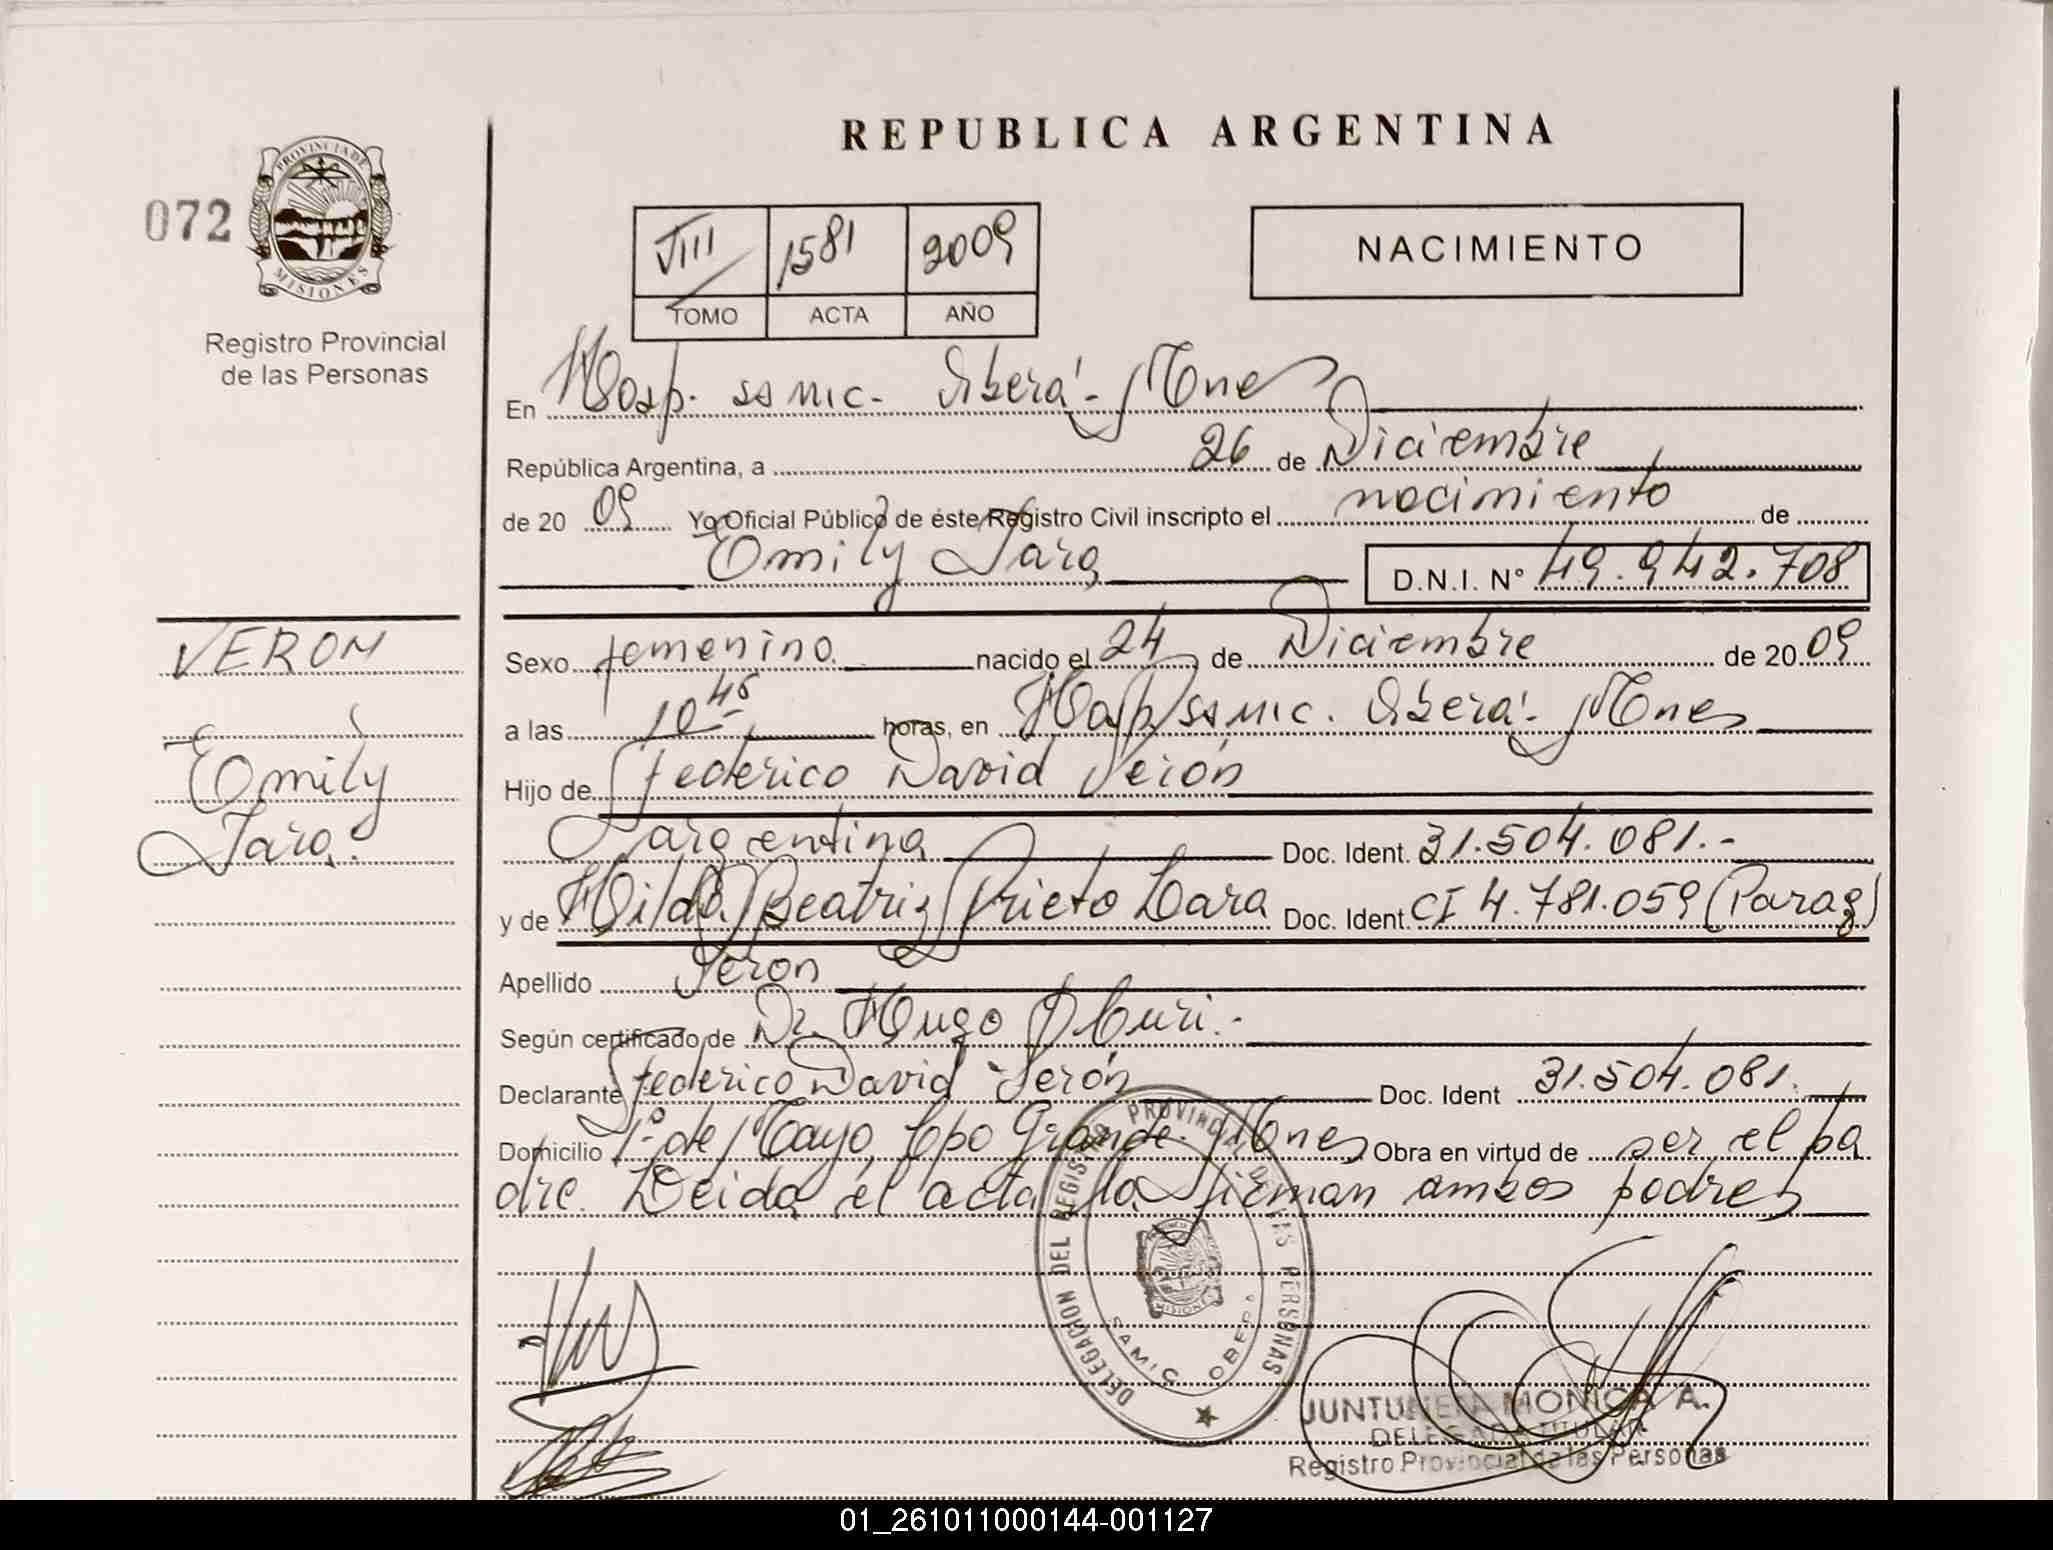 REPUBLICA ARGENTINA
072
PROVINCIA DE
MISIONES
Registro Provincial
de las Personas
VIII 1581 2009
TOMO ACTA AÑO
NACIMIENTO
En Hosp. ssmic. Oberá - Mnes
República Argentina, a 26 de Diciembre
de 20 09 Yo Oficial Público de éste Registro Civil inscripto el nacimiento de
Emily Jara D.N.I. N° 49.942.708
VERON
Emily
Jara.
Sexo femenino nacido el 24 de Diciembre de 20 09
a las 10 45 horas, en Hosp ssmic. Oberá - Mnes
Hijo de Federico David Verón
argentina Doc. Ident. 31.504.081.-
y de Hilda Beatriz Prieto Lara Doc. Ident. CI 4.781.059 (Parag)
Apellido Veron
Según certificado de Dr. Hugo
Declarante Federico David Verón Doc. Ident 31.504.081.
Domicilio 1° de Mayo, Cpo Grande. Mnes Obra en virtud de ser el pa
dre. Leida el acta la firman ambos padres
DELEGACION DEL REGISTRO PROVINCIAL DE LAS PERSONAS
SAMIC OBERA
MISIONES
MONICA A.
DELEGADA TITULAR
Registro Provincial de las Personas
01_261011000144-001127